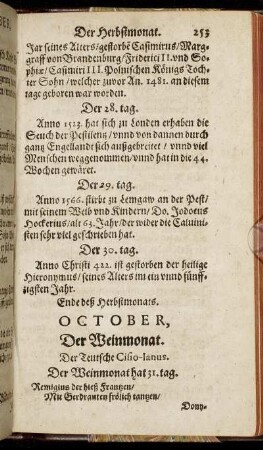 Der Herbstmonat. 253
Jar seines Alters/gestorbẽ Casimirus/Marg-
graff von Brandenburg/Friderici II. vnd So-
phiæ/Casimiri III. Polnischen Königs Toch-
ter Sohn/welcher zuvor An. 1481. an diesem
tage geboren war worden.
Der 28. tag.
Anno 1523. hat sich zu Londen erhaben die
Seuch der Pestilentz/vnnd von dannen durch
gantz Engellandt sich außgebreitet/vnnd viel
Menschen weggenommen/vnnd hat in die 44.
Wochen gewäret.
Der 29. tag.
Anno 1566. stirbt zu Lemgaw an der Pest/
mit seinem Weib vnd Kindern/Do. Jodocus
Hockerius/alt 63. Jahr/der wider die Caluini-
sten sehr viel geschrieben hat.
Der 30. tag.
Anno Christi 422. ist gestorben der heilige
Hieronymus/seines Alters im ein vnnd fünff-
tzigsten Jahr.
Ende deß Herbstmonats.
OCTOBER,
Der Weinmonat.
Der Teutsche Cisio-Ianus.
Der Weinmonat hat 31. tag.
Remigius der hieß Frantzen/
Mit Gerdrauten frölich tantzen/
Dony-